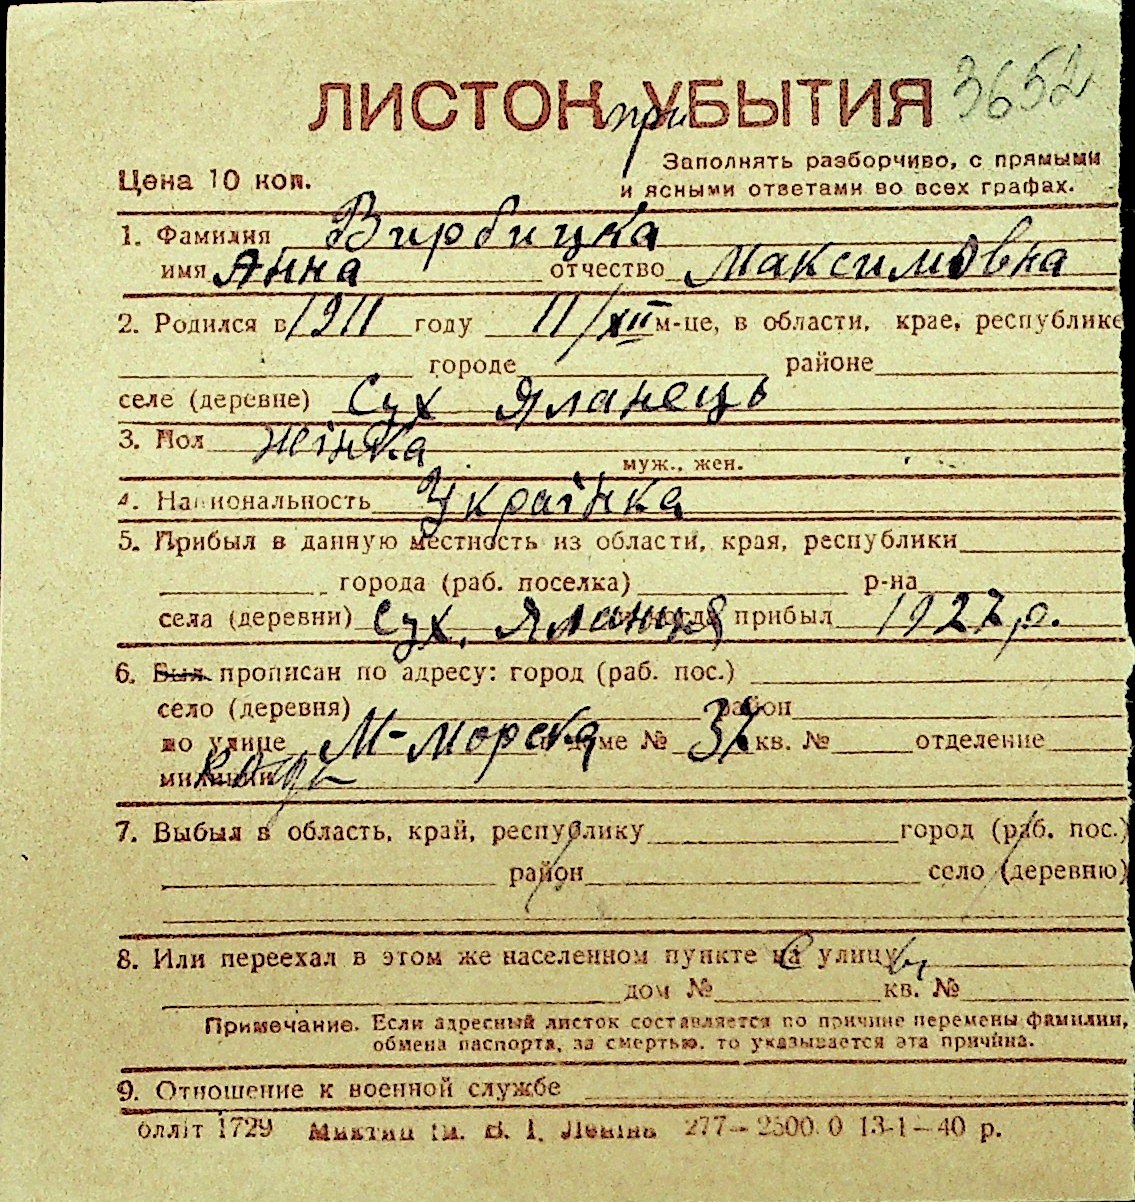 3652
ЛИСТОК при УБЫТИЯ
Цена 10 коп.
Заполнять разборчиво, с прямыми
и ясными ответами во всех графах.
1. Фамилия Вирбицка
имя Анна отчество Максимовна
2. Родился в 1911 году 11/XII м-це, в области, крае, республике
городе районе
селе (деревне) Сух Яланець
3. Пол жінка
муж., жен.
4. Национальность Українка
5. Прибыл в данную местность из области, края, республики
города (раб. поселка) р-на
села (деревни) Сух. Яланця и когда прибыл 1927 р.
6. Был прописан по адресу: город (раб. пос.)
село (деревня) район
по улице М-морска в доме № 37 кв. № отделение
милиции
7. Выбыл в область, край, республику город (раб. пос.)
район село (деревню)
8. Или переехал в этом же населенном пункте на улицу
дом № кв. №
Примечание. Если адресный листок составляется по причине перемены фамилии,
обмена паспорта, за смертью, то указывается эта причина.
9. Отношение к военной службе
Олліт 1729 Миктип ім. В. І. Леніна 277—2500.0 13-1—40 р.